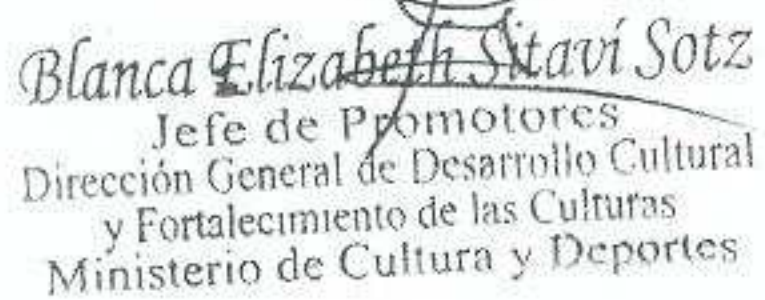 Blanca Elizabeth Sitaví Sotz
Jefe de Promotores
Dirección General de Desarrollo Cultural
y Fortalecimiento de las Culturas
Ministerio de Cultura y Deportes